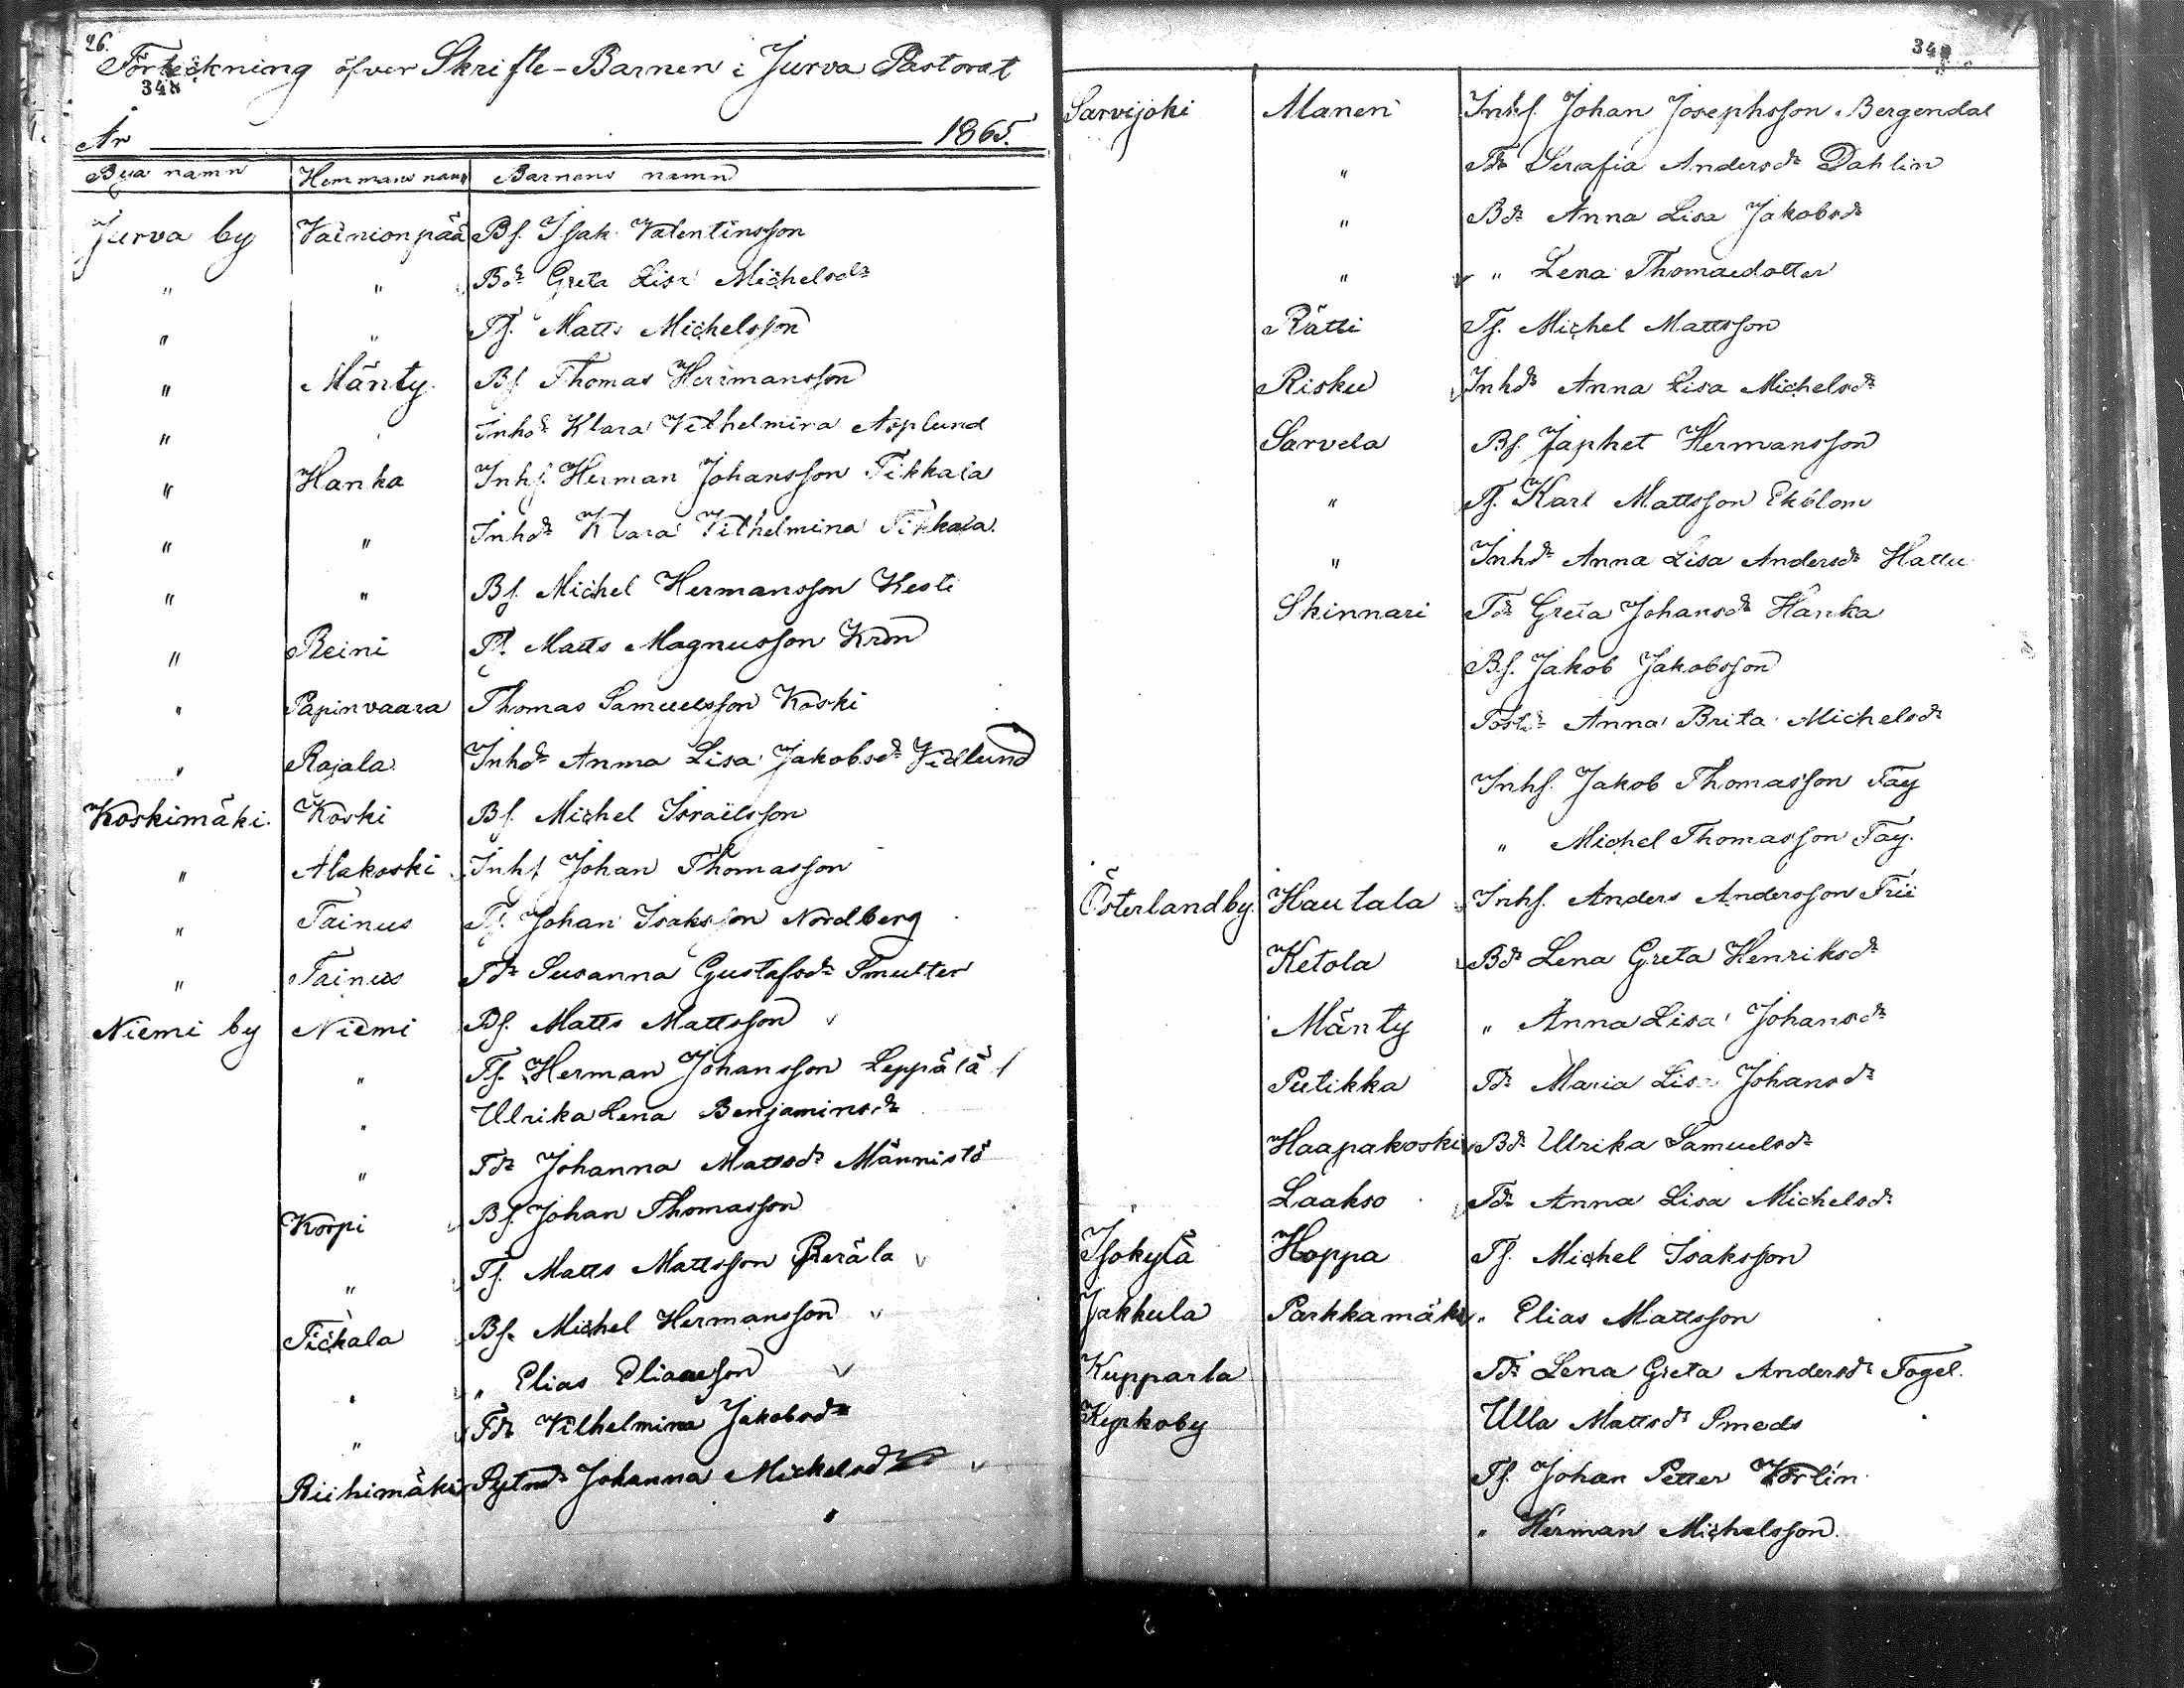 26.
Förteckning öfver Skrifte-Barnen i Jurva Pastorat
348
År 1865.
Bya namn Hemmans namn Barnens namn
Jurva by Vainionpää Bs. Isak Valentinsson
" " Bdr Greta Lisa Michelsdr
" " Ts. Matts Michelsson
" Mänty. Bs Thomas Hermansson
" Inhdr Klara Vilhelmina Asplund
" Hanka Inhs. Herman Johansson Tikkala
" " Inhdr Klara Vilhelmina Tikkala.
" " Bs. Michel Hermansson Kesti
" Reini Ts. Matts Magnusson Kron
" Papinvaara Thomas Samuelsson Koski
" Rajala Inhdr Anna Lisa Jakobsdr Vedlund
Koskimäki. Koski Bs Michel Israelsson
" Alakoski Inhs Johan Thomasson
" Tainus Ts. Johan Isaksson Nordberg
" Tainus Tdr Susanna Gustafsdr Smulter
Niemi by Niemi Bs. Matts Mattsson
" Ts. Herman Johansson Leppälä
" Ulrika Lena Benjaminsdr
" Tdr Johanna Mattsdr Männistö
Korpi Bs. Johan Thomasson
" Ts. Matts Mattsson Perälä
Tickala Bs. Michel Hermansson
" " Elias Eliasson
" Tdr Vilhelmina Jakobsdr
Riihimäki Johanna Michelsdr
34
Sarvijoki Maneri Inhs. Johan Josephsson Bergendal
" Tdr Serafia Andersdr Dahlin
" Bdr Anna Lisa Jakobsdr
" " Lena Thomaedotter
Rätti Ts. Michel Mattsson
Risku Inhdr Anna Lisa Michelsdr
Sarvela Bs. Japhet Hermansson
" Ts. Karl Mattsson Ekblom
" Inhdr Anna Lisa Andersdr Hallu
Skinnari Tdr Greta Johansdr Hanka
Bs. Jakob Jakobsson
Anna Brita Michelsdr
Inhs. Jakob Thomasson Fay
" Michel Thomasson Fay.
Österlandby Hautala Inhs. Anders Andersson Frii
Ketola Bdr Lena Greta Henriksdr
Mänty " Anna Lisa Johansdr
Putikka Tdr Maria Lisa Johansdr
Haapakoski Bdr Ulrika Samuelsdr
Laakso Tdr Anna Lisa Michelsdr
Isokylä Hoppa Ts. Michel Isaksson
Jakkula Parkkamäki " Elias Mattsson
Kupparla Tdr Lena Greta Andersdr Fogel.
Kyrkoby Ulla Mattsdr Smeds
Ts. Johan Petter Korlin
" Herman Michelsson.